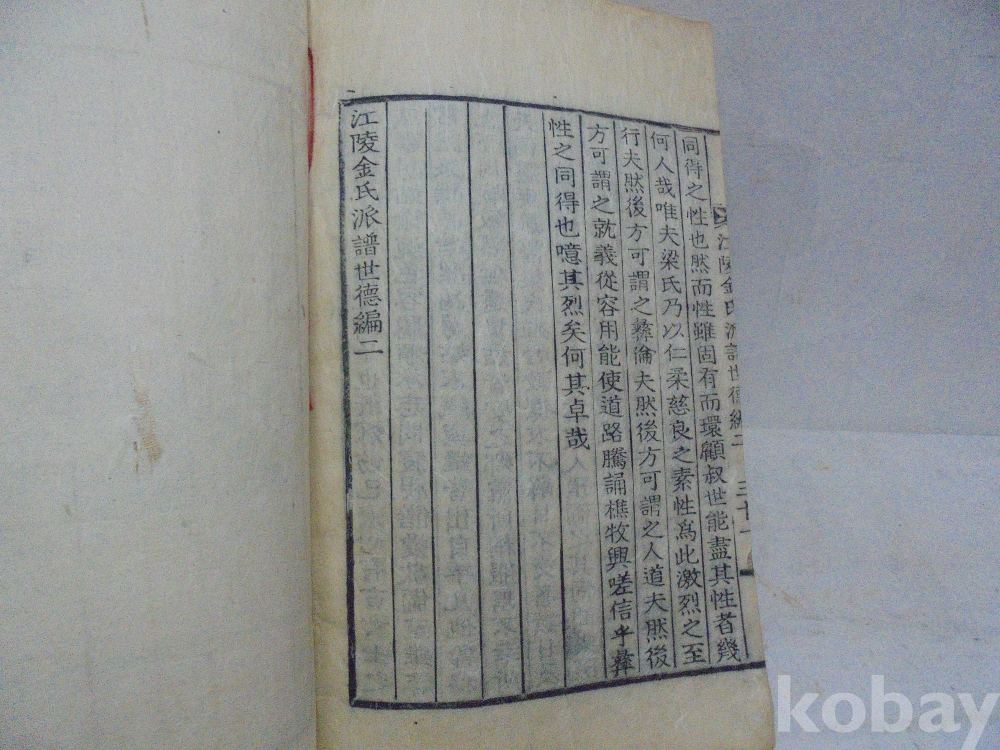 江陵金氏派譜世德編二
同得之性也然而性雖固有而環顧叔世能盡其性者幾
何人哉唯夫梁氏乃以仁柔慈良之素性爲此激烈之至
行夫然後方可謂之彝倫夫然後方可謂之人道夫然後
方可謂之就義從容用能使道路騰誦樵牧興嗟信乎彝
性之同得也噫其烈矣何其卓哉
江陵金氏派譜世德編二
kobay